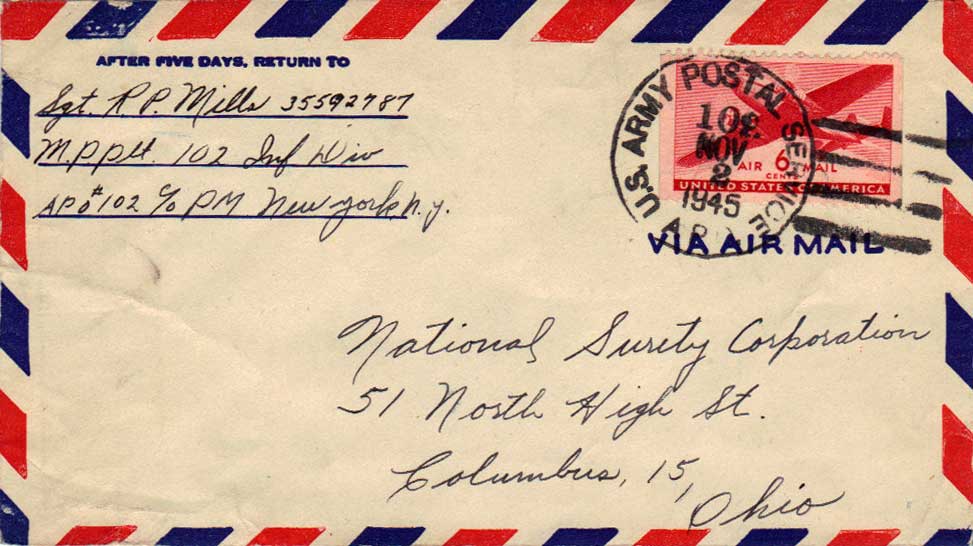 AFTER FIVE DAYS, RETURN TO
Sgt. R.P. Mills 35592787
M.P. Plt. 102 Inf Div
APO #102 c/o PM New York, N.y.
U.S. ARMY POSTAL SERVICE
102
NOV
2
1945
AIR 6 MAIL
CENTS
UNITED STATES OF AMERICA
VIA AIR MAIL
National Surety Corporation
51 North High St.
Columbus, 15,
Ohio